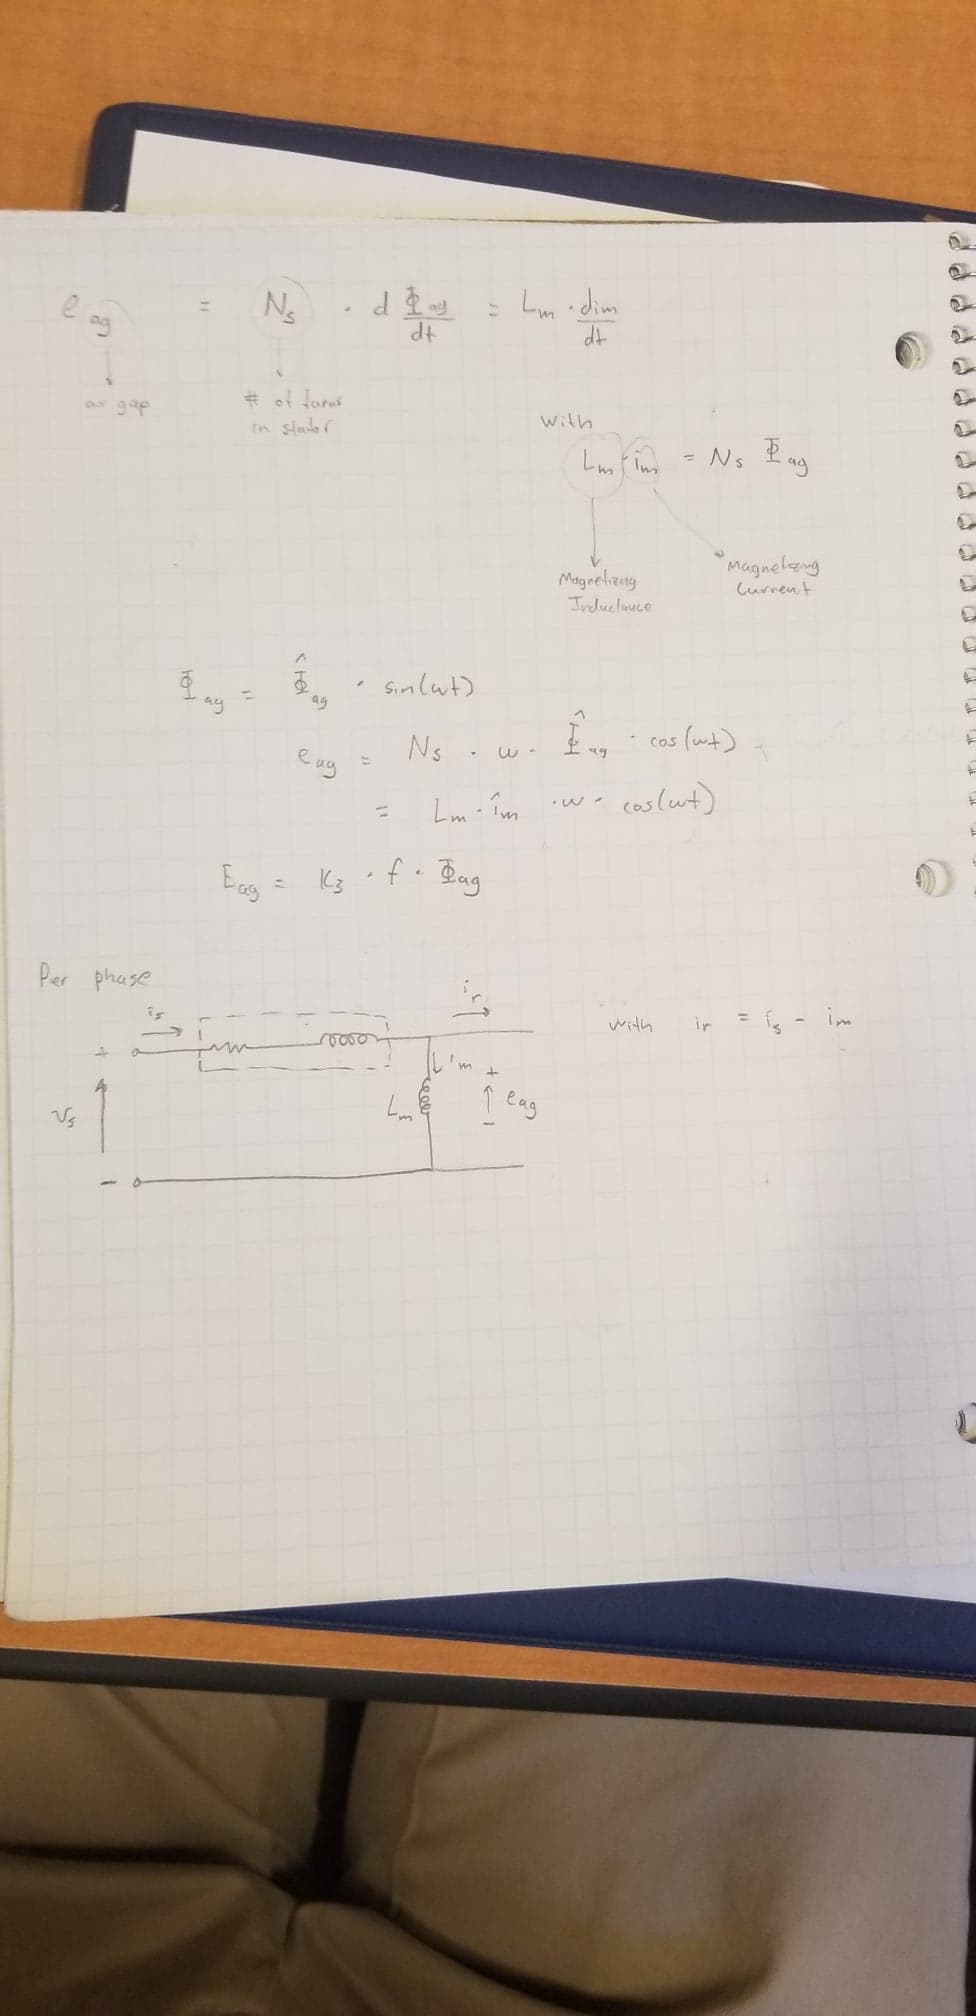 e_ag = N_s · dΦ_ag/dt = L_m · dim/dt
air gap
# of turns
in stator
with
L_m · i_m = N_s Φ_ag
Magnetizing
Inductance
Magnetizing
Current
Φ_ag = Φ̂_ag · sin(ωt)
e_ag = N_s · ω · Φ̂_ag · cos(ωt)
= L_m · î_m · ω · cos(ωt)
E_ag = K_3 · f · Φ_ag
Per phase
i_s
i_r
with i_r = i_s - i_m
+
i_m
+
v_s
L_m
e_ag
-
-